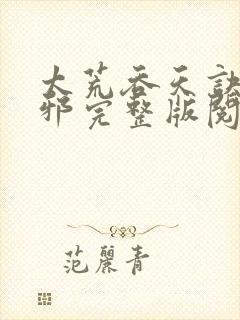 大荒吞天訣
邪完整版閱
范麗青